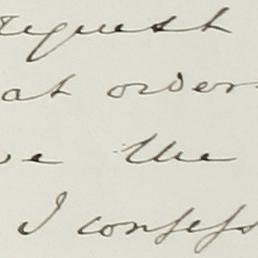 request
at orders
ve the
I confess